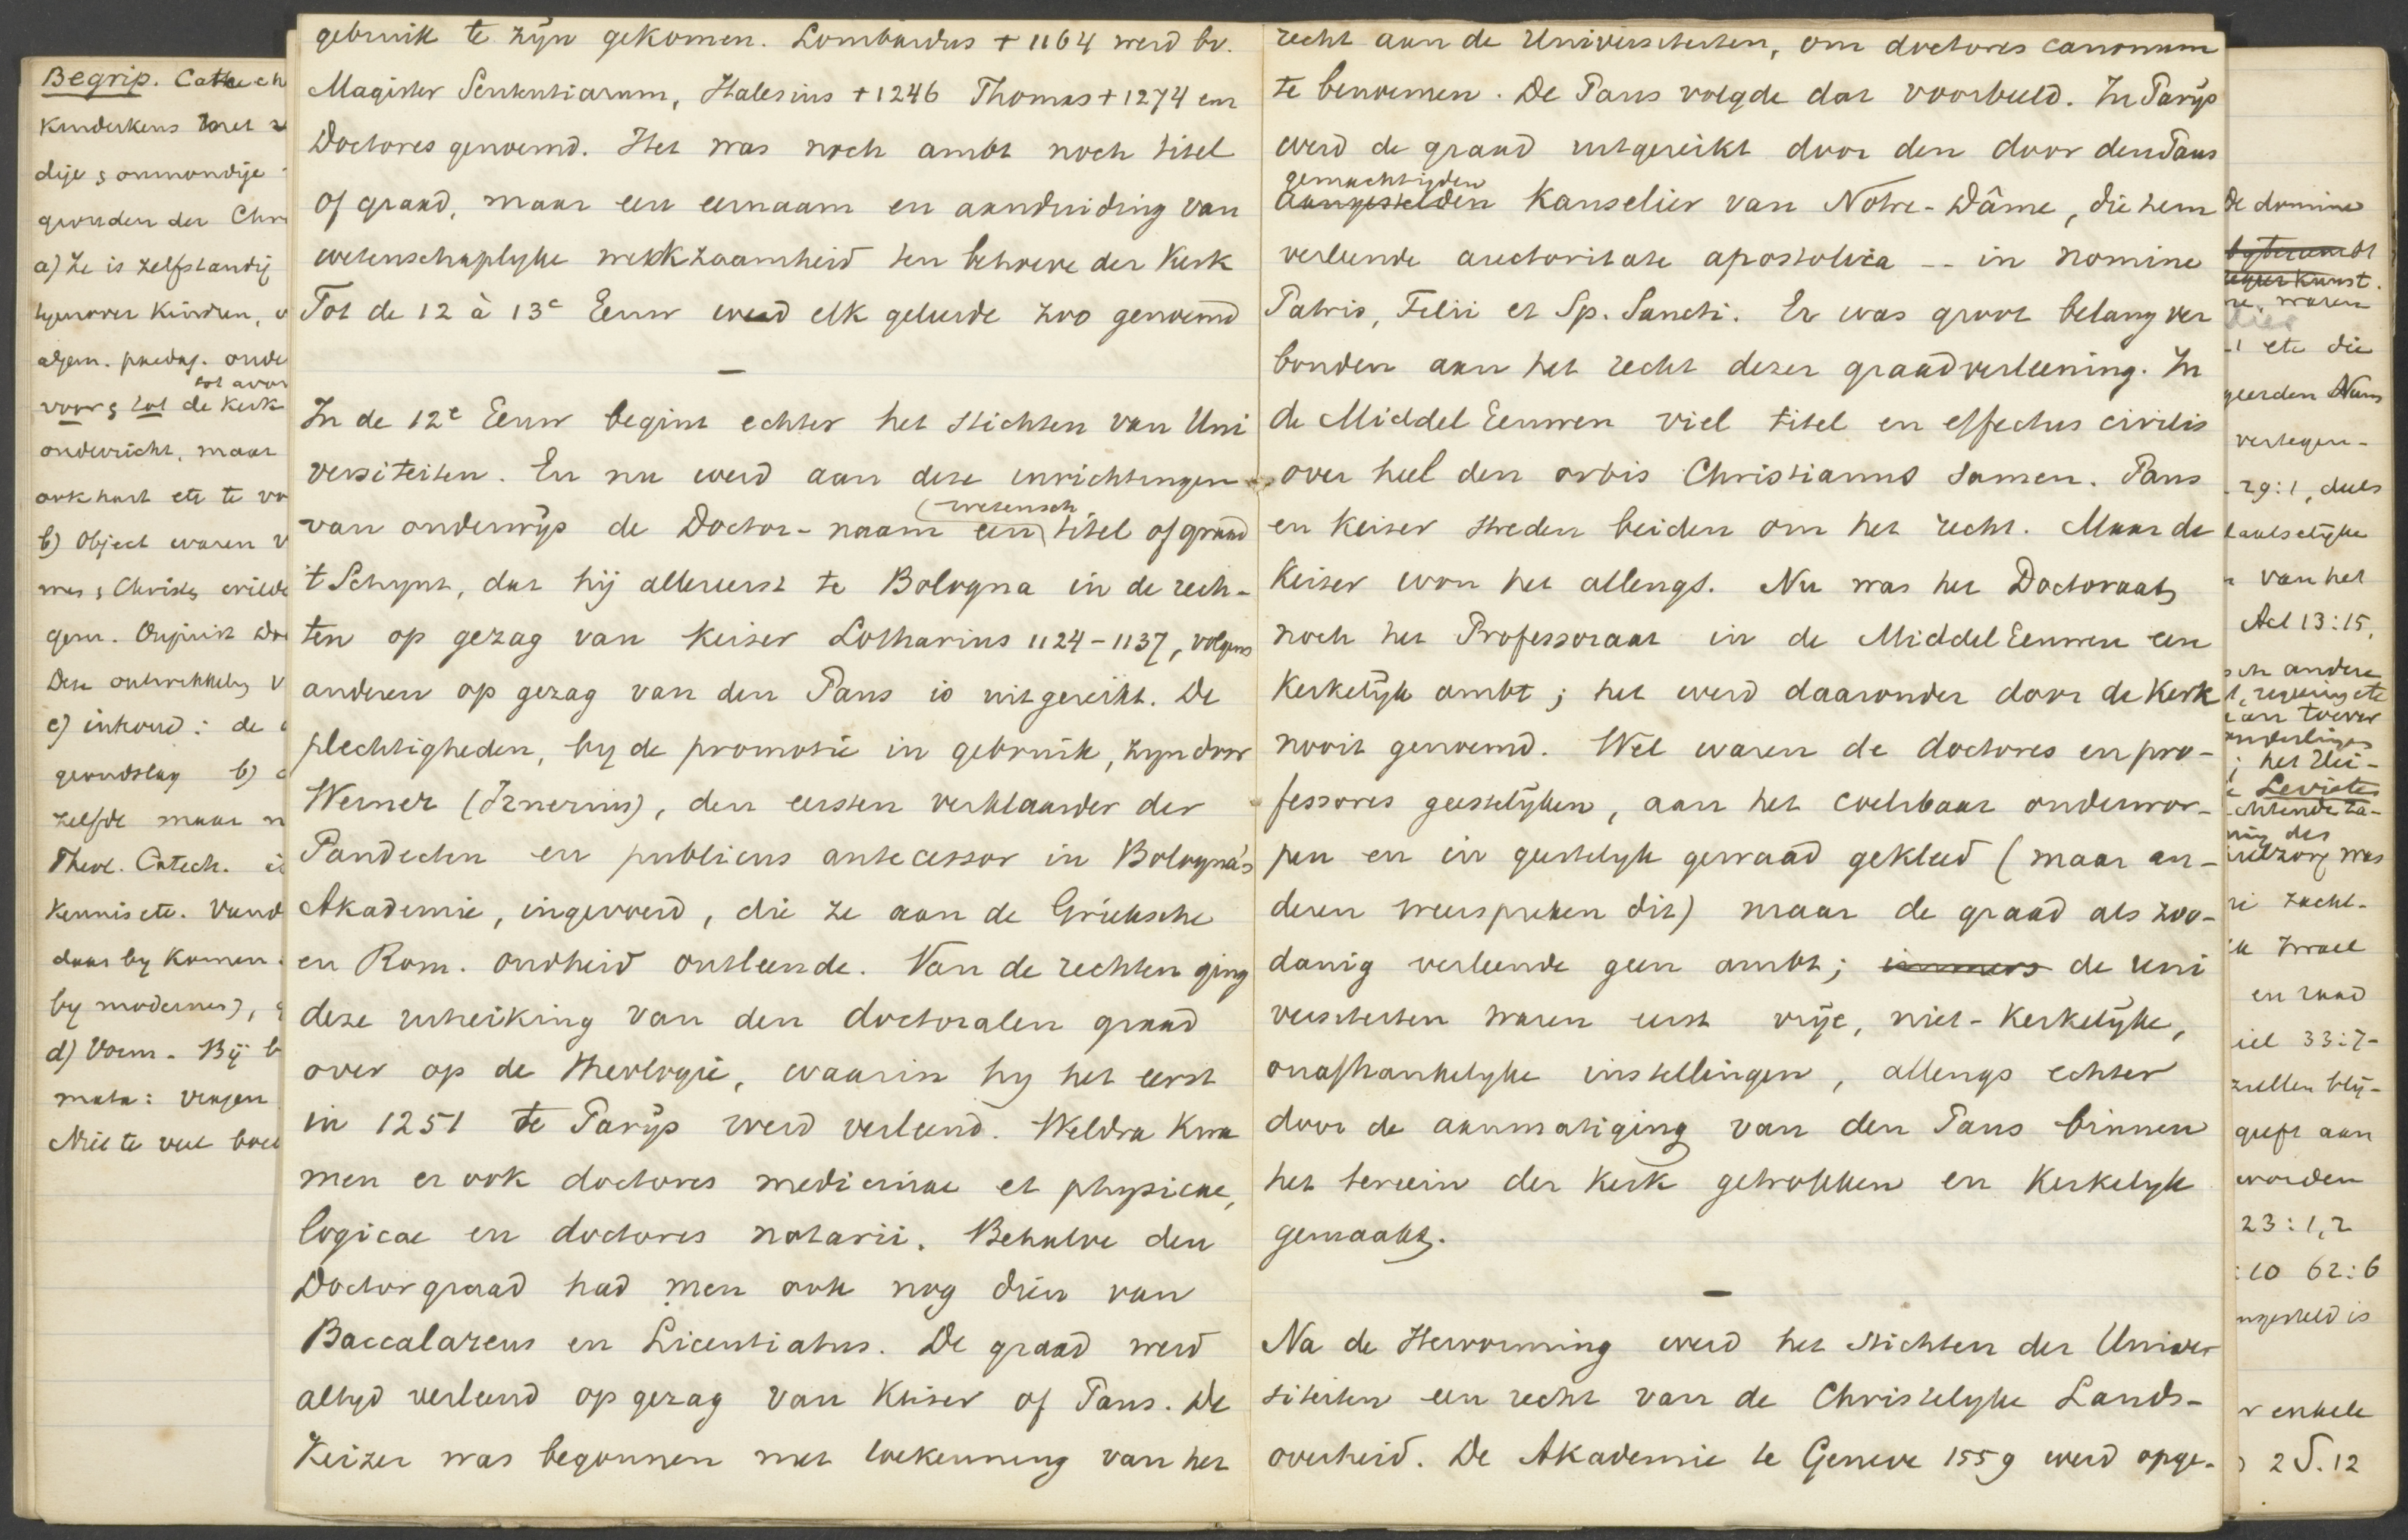 Begrip. Catech
Kinderkens met
dije & onmondije
gronden der Chr
a) Ze is zelfstandij
tegenover Kindren,
algem. paedag. onde
voor & tot de Kerk
onderricht, maar
ook hart etc te vo
b) Object waren
c) inhoud: de
grondslag b)
zelfde maar n
Theol. Catech. i
Kennis etc. Vand
daar by komen.
by modernes),
d) Vorm. Bij b
mata: vragen
Niet te veel boe
gebruik te zÿn gekomen. Lombardus + 1164 werd bv.
Magister Sententiarum, Halesius + 1246 Thomas + 1274 enz
Doctores genoemd. Het was noch ambt noch titel
of graad, maar een eernaam en aanduiding van
wetenschaplyke werkzaamheid ten behoeve der Kerk
Tot de 12 à 13e Eeuw werd elk geleerde zoo genoemd
—
In de 12e Eeuw begint echter het stichten van Uni
versiteiten. En nu werd aan deze inrichtingen
(wetensch
van onderwÿs de Doctor-naam een titel of graad
't Schynt, dat hij allereerst te Bologna in de rech-
ten op gezag van Keiser Lotharius 1124-1137, volgens
anderen op gezag van den Paus is uitgereikt. De
plechtigheden, by de promotie in gebruik, zyn door
Werner (Irnerius), den eersten verklaarder der
Pandecten en publicus antecessor in Bologna's
Akademie, ingevoerd, die ze aan de Grieksche
en Rom. oudheid ontleende. Van de rechten ging
deze uitreiking van den doctoralen graad
over op de Theologie, waarin hy het eerst
in 1251 te Parÿs werd verleend. Weldra kwa
men er ook doctores medicinae et physicae,
logicae en doctores notarii. Behalve den
Doctorgraad had men ook nog dien van
Baccalareus en Licentiatus. De graad werd
altyd verleend op gezag van Keiser of Paus. De
Keizer was begonnen met toekenning van het
recht aan de Universiteiten, om doctores canonum
te benoemen. De Paus volgde dat voorbeeld. In Parÿs
werd de graad uitgereikt door den door den Paus
gemachtigden
aangestelden Kanselier van Notre-Dâme, die hem
verleende auctoritate apostolica -- in nomine
Patris, Filii et Sp. Sancti. Er was groot belang ver
bonden aan het recht dezer graadverleening. In
de Middel Eeuwen viel titel en effectus civilis
over heel den orbis Christianus samen. Paus
en Keiser streden beiden om het recht. Maar de
Keiser won het allengs. Nu was het Doctoraat
noch het Professoraat in de Middel Eeuwen een
Kerkelÿk ambt; het werd daaronder door de Kerk
nooit genoemd. Wel waren de doctores en pro-
fessores geestelÿken, aan het coelibaat onderwor-
pen en in geestelyk gewaad gekleed (maar an-
deren weerspreken dit) maar de graad als zoo-
danig verleende geen ambt; immers de uni
versiteiten waren eerst vrÿe, niet-Kerkelÿke,
onafhankelyke instellingen, allengs echter
door de aanmatiging van den Paus binnen
het terrein der Kerk getrokken en Kerkelyk
gemaakt.
—
Na de Hervorming werd het stichten der Univer
siteiten een recht van de Christelyke Lands-
overheid. De Akademie te Geneve 1559 werd opge-
de domine
waren
etc die
vertegen-
29:1, deels
van het
Act 13:15,
andere
Levieten
Israel
en raad
33:7-
zullen blÿ-
geeft aan
worden
23:1,2
:10 62:6
enkele
2 S. 12